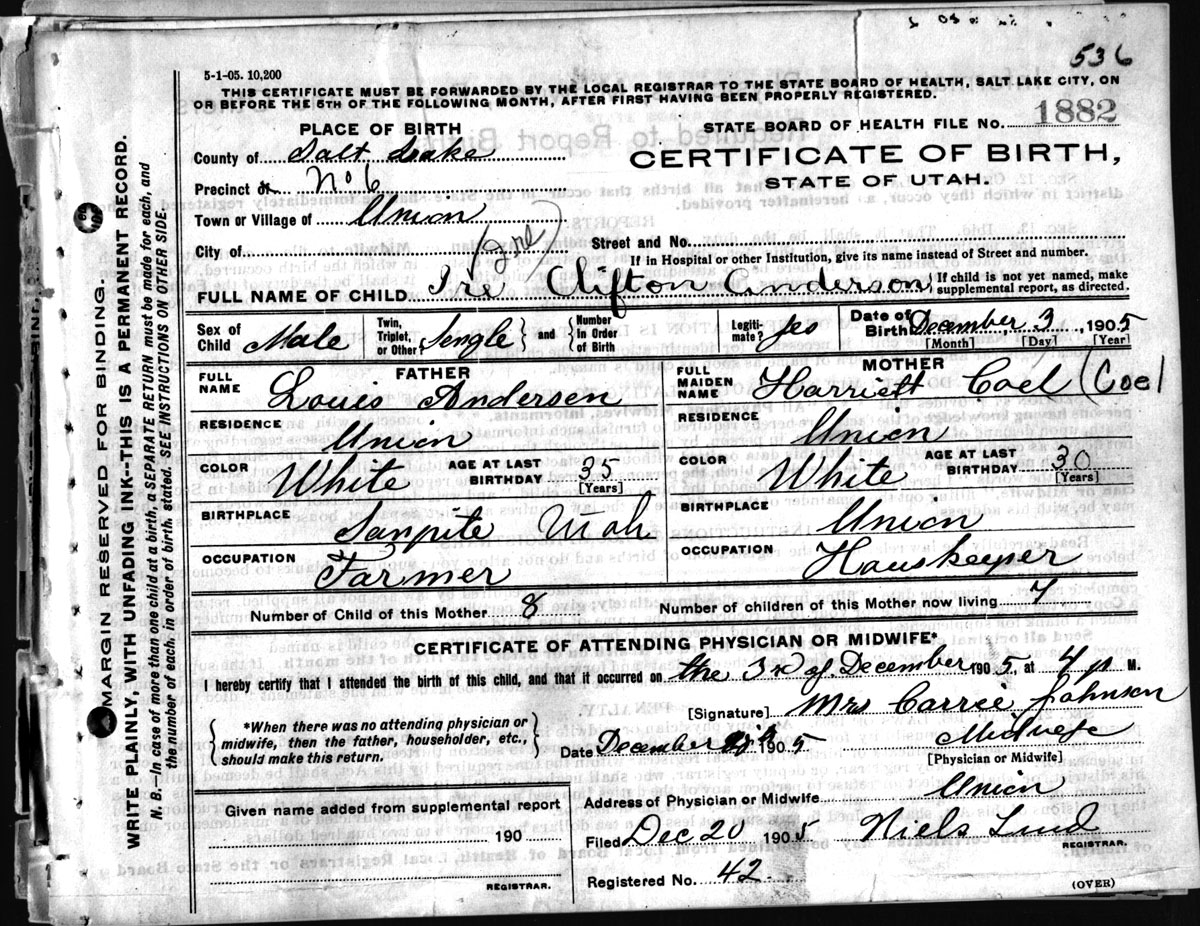 536
5-1-05. 10,200
THIS CERTIFICATE MUST BE FORWARDED BY THE LOCAL REGISTRAR TO THE STATE BOARD OF HEALTH, SALT LAKE CITY, ON
OR BEFORE THE 5TH OF THE FOLLOWING MONTH, AFTER FIRST HAVING BEEN PROPERLY REGISTERED.
PLACE OF BIRTH
STATE BOARD OF HEALTH FILE No. 1882
County of Salt Lake
CERTIFICATE OF BIRTH,
STATE OF UTAH.
Precinct of No 6
Town or Village of Union
City of (Ire)
Street and No.
If in Hospital or other Institution, give its name instead of Street and number.
FULL NAME OF CHILD Ire Clifton Anderson { If child is not yet named, make
supplemental report, as directed.
Sex of Child Male Twin, Triplet, or Other Sengle } and { Number In Order of Birth Legiti- mate? yes Date of Birth December 3, 1905
[Month] [Day] [Year]
FATHER
MOTHER
FULL NAME Louis Andersen
FULL MAIDEN NAME Harriett Coel (Coel
RESIDENCE Union
RESIDENCE Union
COLOR White AGE AT LAST BIRTHDAY 35 [Years]
COLOR White AGE AT LAST BIRTHDAY 30 [Years]
BIRTHPLACE Sanpite Utah
BIRTHPLACE Union
OCCUPATION Farmer
OCCUPATION Hauskeyper
Number of Child of this Mother 8 Number of children of this Mother now living 7
CERTIFICATE OF ATTENDING PHYSICIAN OR MIDWIFE*
I hereby certify that I attended the birth of this child, and that it occurred on the 3rd of December 1905, at 4 p M.
[Signature] Mrs Carrie Johnsen
{ *When there was no attending physician or
midwife, then the father, householder, etc.,
should make this return. }
Date December 1905 Midvefe
[Physician or Midwife]
Given name added from supplemental report
190
REGISTRAR.
Address of Physician or Midwife Union
Filed Dec 20 1905 Niels Lind
REGISTRAR.
Registered No. 42
(OVER)
MARGIN RESERVED FOR BINDING.
WRITE PLAINLY, WITH UNFADING INK--THIS IS A PERMANENT RECORD.
N. B.--In case of more than one child at a birth, a SEPARATE RETURN must be made for each, and
the number of each, in order of birth, stated. SEE INSTRUCTIONS ON OTHER SIDE.